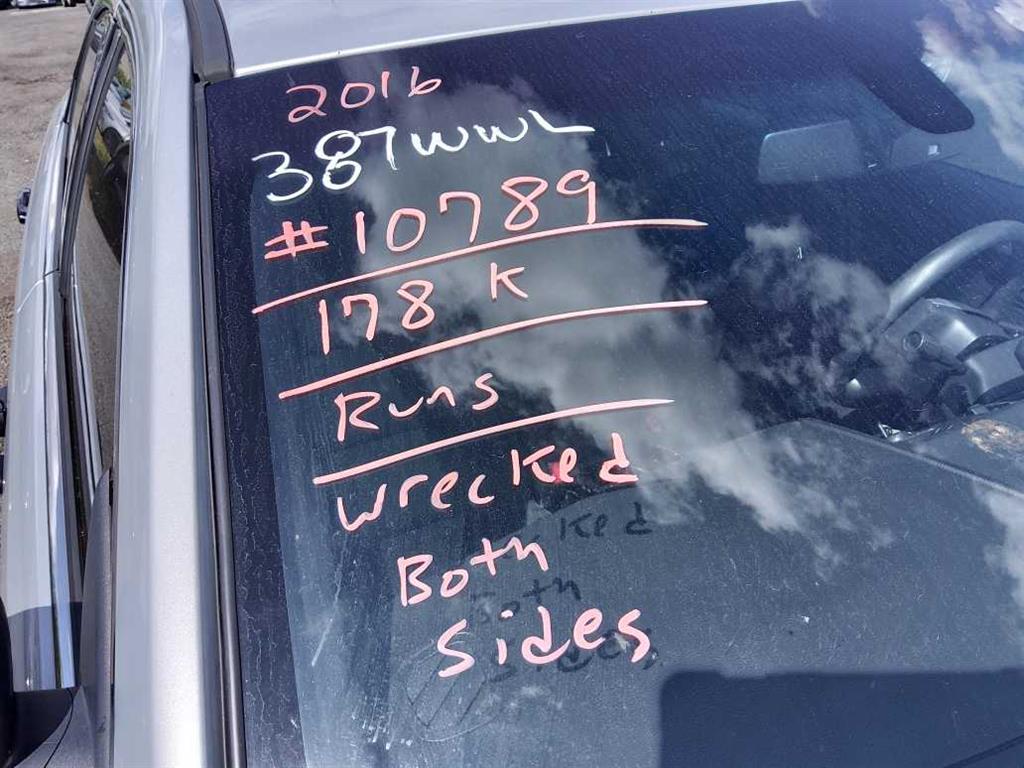 2016
387WWL
#10789
178 K
Runs
wrecked
Both
sides